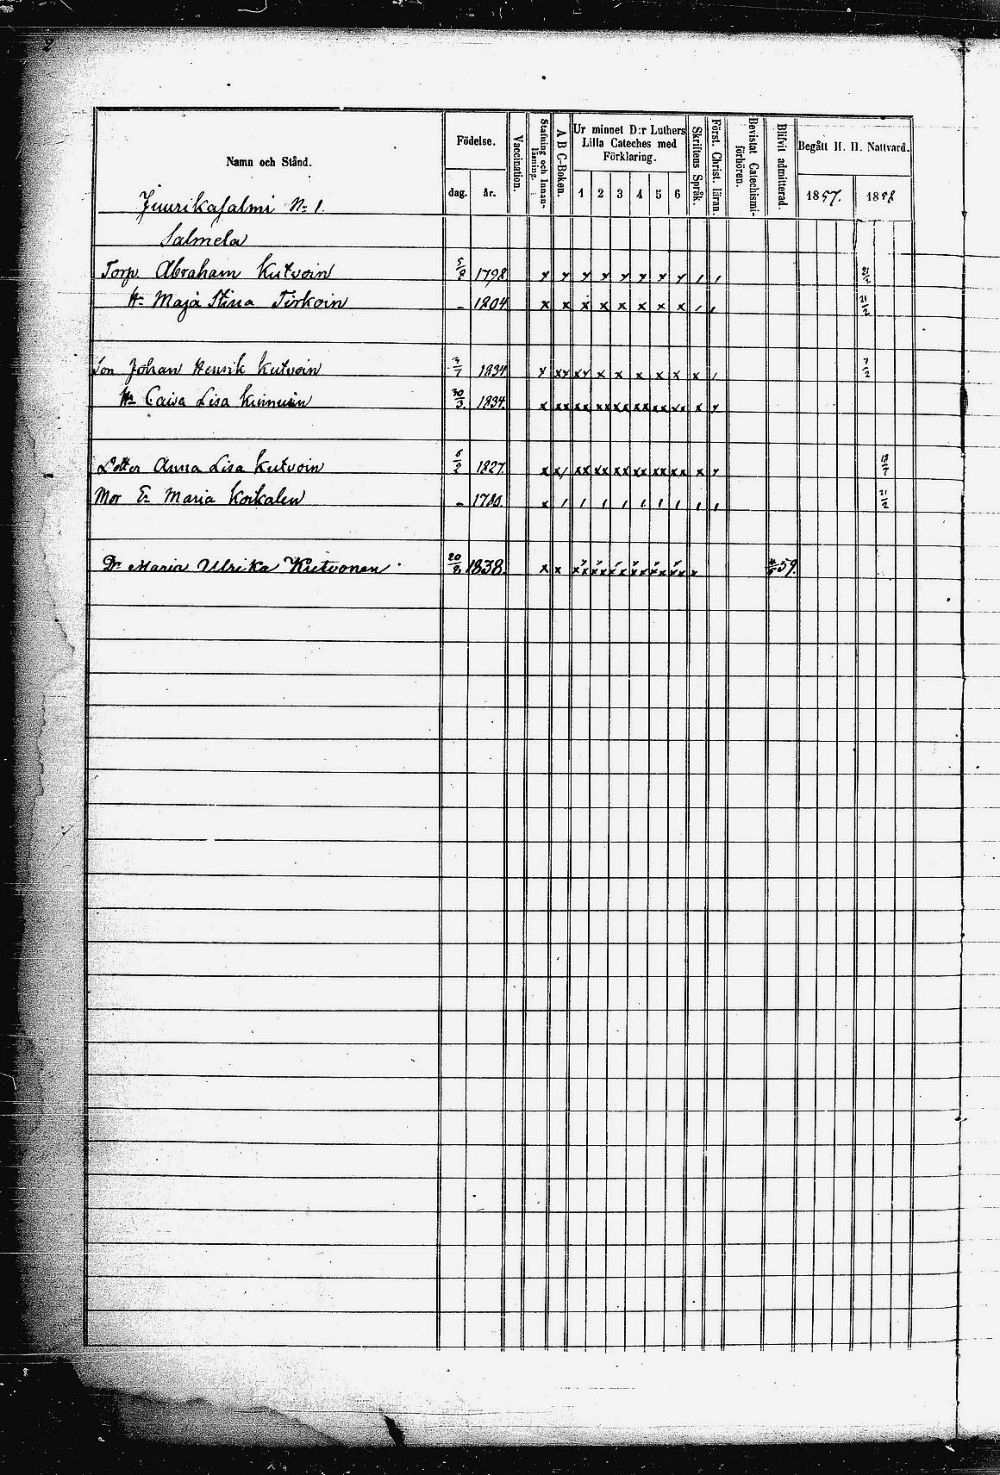 2
Namn och Stånd.
Födelse.
dag. år.
Vaccination.
Stafning och Innan-läsning.
A B C-Boken.
Ur minnet D:r Luthers
Lilla Cateches med
Förklaring.
1 2 3 4 5 6
Skriftens Språk.
Först. Christ. läran.
Bevistat Catechismi-förhören.
Blifvit admitterad.
Begått H. H. Nattvard.
1857. 1858
Juurikasalmi No 1.
Salmela
Torp Abraham Kutvoin 1798
Hu Maja Stina Tirkoin - 1804
Son Johan Henrik Kutvoin 1834
Hu Caisa Lisa Kinnuin 30/3 1834
Dotter Anna Lisa Kutvoin 1827
Mor E: Maria Koikalen - 1780.
Dr Maria Ulrika Kutvonen 20/8 1838 59.